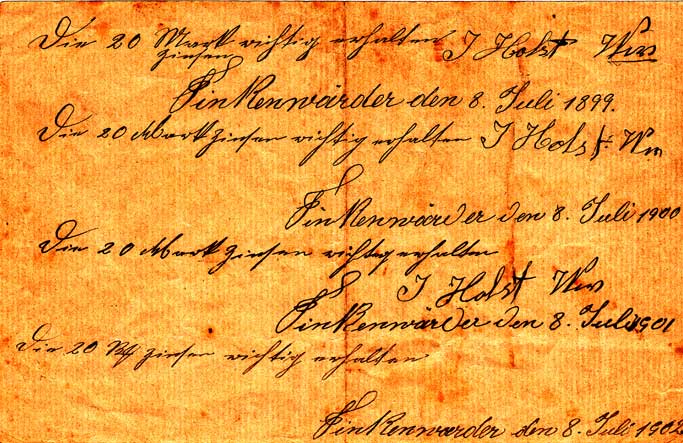 Die 20 Mark richtig erhalten J Holst Wwe
Zinsen
Finkenwärder den 8. Juli 1899.
Die 20 Mark Zinsen richtig erhalten J Holst Ww
Finkenwärder den 8. Juli 1900
Die 20 Mark Zinsen richtig erhalten
J Holst Ww
Finkenwärder den 8. Juli 1901
Die 20 M Zinsen richtig erhalten
Finkenwarder den 8. Juli 1902